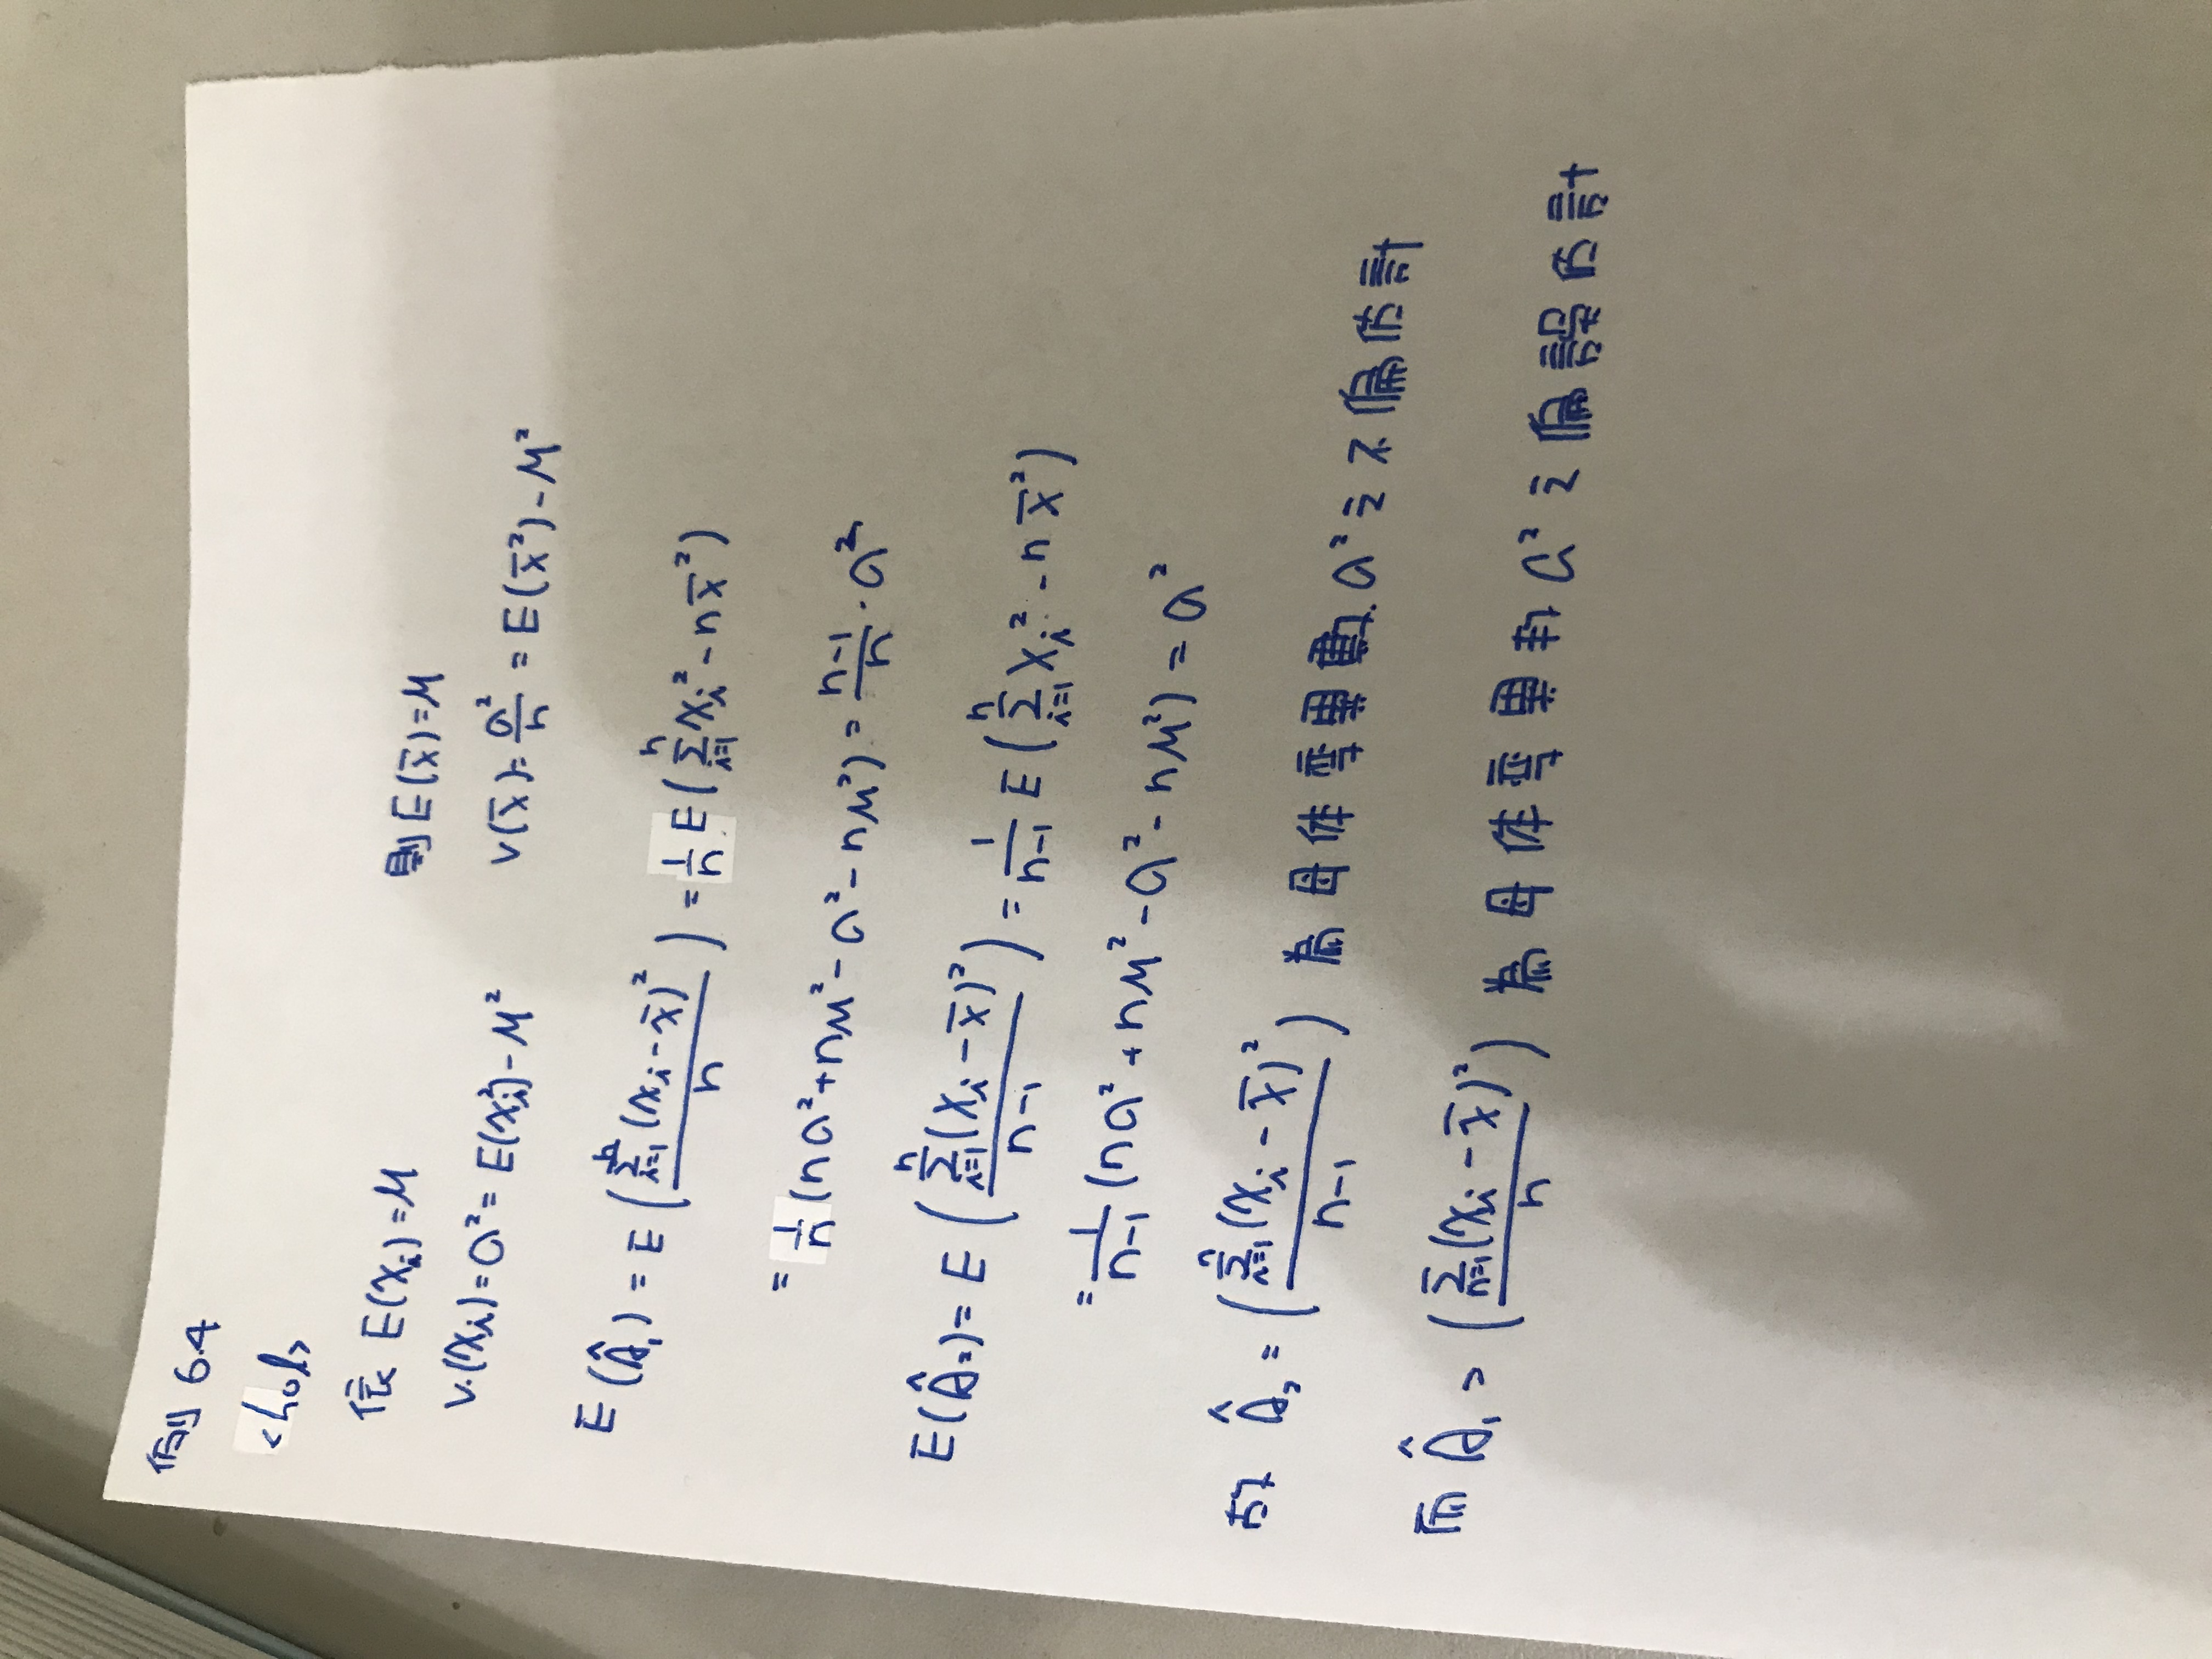 例 6.4
<sol>
依 E(Xi)=μ 則 E(x̄)=μ
V(Xi)=σ²=E(Xi²)-μ² V(x̄)=σ²/n=E(x̄²)-μ²
E(θ̂₁)=E(Σᵢ₌₁ⁿ(Xi-x̄)²/n)=1/n E(Σᵢ₌₁ⁿXi²-nx̄²)
=1/n(nσ²+nμ²-σ²-nμ²)=n-1/n·σ²
E(θ̂₂)=E(Σᵢ₌₁ⁿ(Xi-x̄)²/n-1)=1/n-1 E(Σᵢ₌₁ⁿXi²-nx̄²)
=1/n-1(nσ²+nμ²-σ²-nμ²)=σ²
故 θ̂₂=(Σᵢ₌₁ⁿ(Xi-x̄)²/n-1) 為母体變異數σ²之不偏估計
而 θ̂₁=(Σₙ₌₁(Xi-x̄)²/n) 為母体變異数σ²之偏誤估計